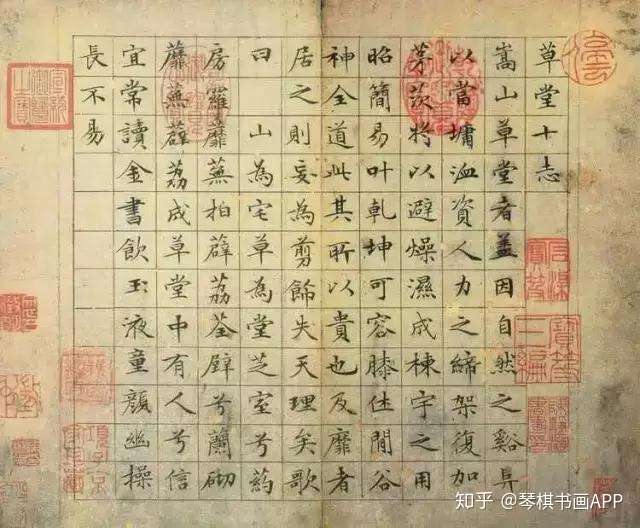 草堂十志
嵩山草堂者盖因自然之谿阜
以當墉洫資人力之締架復加
茅茨將以避燥濕成棟宇之用
昭簡易叶乾坤可容膝休閒谷
神全道此其所以貴也及靡者
居之則妄為剪飾失天理矣歌
曰 山為宅草為堂芝室兮葯
房羅蘼蕪拍薜荔荃壁兮蘭砌
蘼蕪薜荔成草堂中有人兮信
宜常讀金書飲玉液童顏幽操
長不易
知乎 @琴棋书画APP